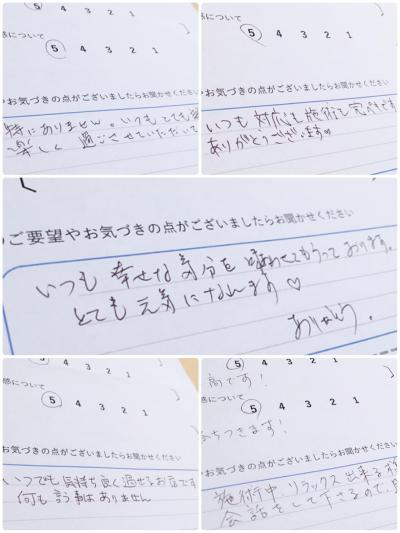 5 4 3 2 1
感について
5 4 3 2 1
やお気づきの点がございましたらお聞かせくださ
特にありません。いつもとても
楽しく過ごさせていただいて
感について
5 4 3 2 1
やお気づきの点がございましたらお聞かせください
いつも対応も施術も完ペキです
ありがとうございます♡
のご要望やお気づきの点がございましたらお聞かせください
いつも幸せな気分を味わせてもらっております。
とても元気になれます♡
4 3 2 1
感について
5 4 3 2 1
お気づきの点がございましたらお聞かせください
いつでも気持ち良く過せるお店です
何も言う事はありません
高です!
感について
5 4 3 2 1
ちつきます!
お気づきの点がございましたらお聞かせくださ
施術中、リラックス出来る
会話をして下さるので、